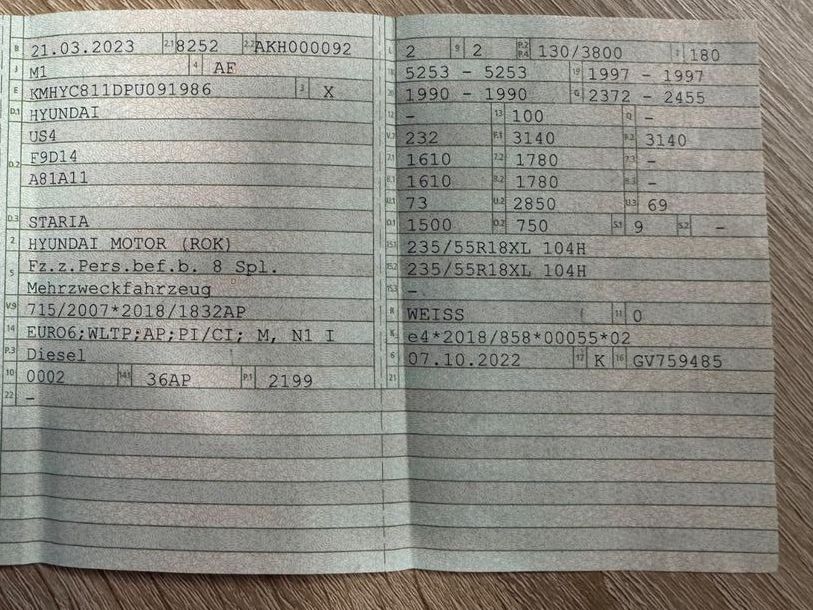 B 21.03.2023 2.1 8252 2.2 AKH000092
J M1 4 AF
E KMHYC811DPU091986 3 X
D.1 HYUNDAI
US4
F9D14
D.2 A81A11
D.3 STARIA
2 HYUNDAI MOTOR (ROK)
5 Fz.z.Pers.bef.b. 8 Spl.
Mehrzweckfahrzeug
V.9 715/2007*2018/1832AP
14 EURO6;WLTP;AP;PI/CI; M, N1 I
P.3 Diesel
10 0002 14.1 36AP P.1 2199
22 -
L 2 9 2 P.2 P.4 130/3800 T 180
18 5253 - 5253 19 1997 - 1997
20 1990 - 1990 G 2372 - 2455
12 - 13 100 Q -
V.7 232 F.1 3140 F.2 3140
7.1 1610 7.2 1780 7.3 -
8.1 1610 8.2 1780 8.3 -
U.1 73 U.2 2850 U.3 69
O.1 1500 O.2 750 S.1 9 S.2 -
15.1 235/55R18XL 104H
15.2 235/55R18XL 104H
15.3 -
R WEISS 11 0
K e4*2018/858*00055*02
6 07.10.2022 17 K 16 GV759485
21